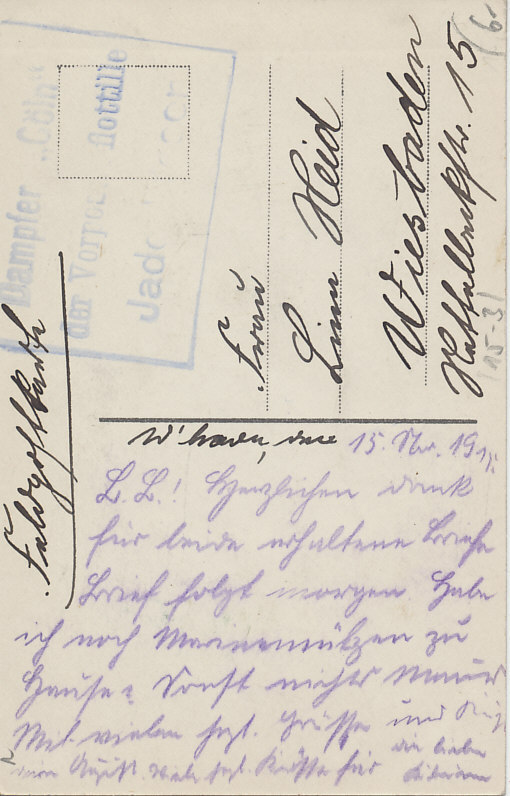 Dampfer „Cöln“
der Vorpos flottille
Jade
Feldpostkarte
Frau
Lina Heid
Wiesbaden
15
(15-3)
W'haven, den 15. Nov. 19
L. L.! Herzlichen Dank
für beide erhaltene Briefe
Brief folgt morgen. Habe
ich noch Marinemützen zu
Hause? Sonst nichts Neues
Mit vielen hzl. Grüsse und
viele hzl. Grüsse für die lieben